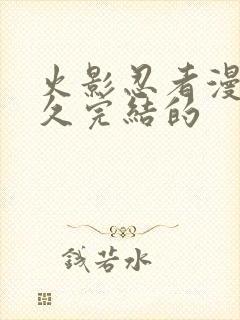 火影忍者漫
久完结的
钱若水